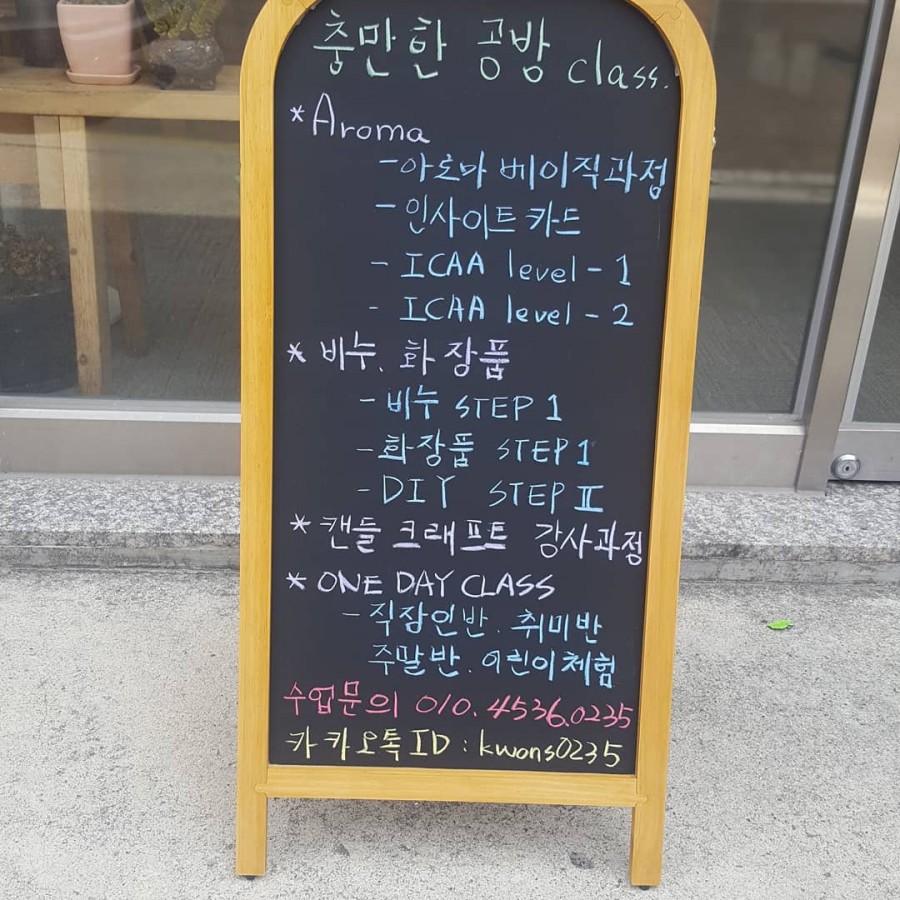 충만한 공방 class.
*Aroma
-아로마 베이직과정
-인사이트카드
- ICAA level-1
- ICAA level-2
* 비누. 화장품
-비누 STEP 1
-화장품 STEP 1
-DIY STEP II
*캔들 크래프트 강사과정
* ONE DAY CLASS
-직장인반. 취미반
주말반. 어린이체험
수업문의 010.4536.0235
카카오톡 ID : kwons0235